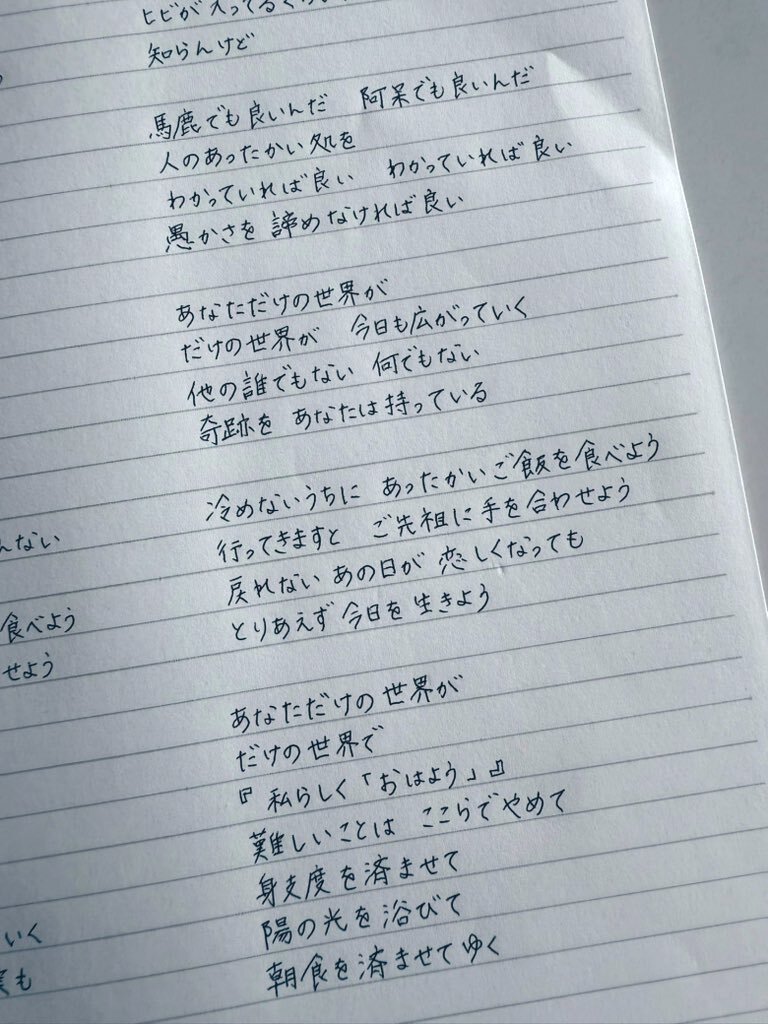 ヒビが入ってるくらい
知らんけど
馬鹿でも良いんだ 阿呆でも良いんだ
人のあったかい処を
わかっていれば良い わかっていれば良い
愚かさを 諦めなければ良い
あなただけの世界が
だけの世界が 今日も広がっていく
他の誰でもない 何でもない
奇跡を あなたは持っている
冷めないうちに あったかいご飯を食べよう
行ってきますと ご先祖に手を合わせよう
戻れない あの日が 恋しくなっても
とりあえず 今日を 生きよう
あなただけの世界が
だけの世界で
『私らしく「おはよう」』
難しいことは ここらでやめて
身支度を済ませて
陽の光を浴びて
朝食を済ませてゆく
んない
食べよう
せよう
いく
も